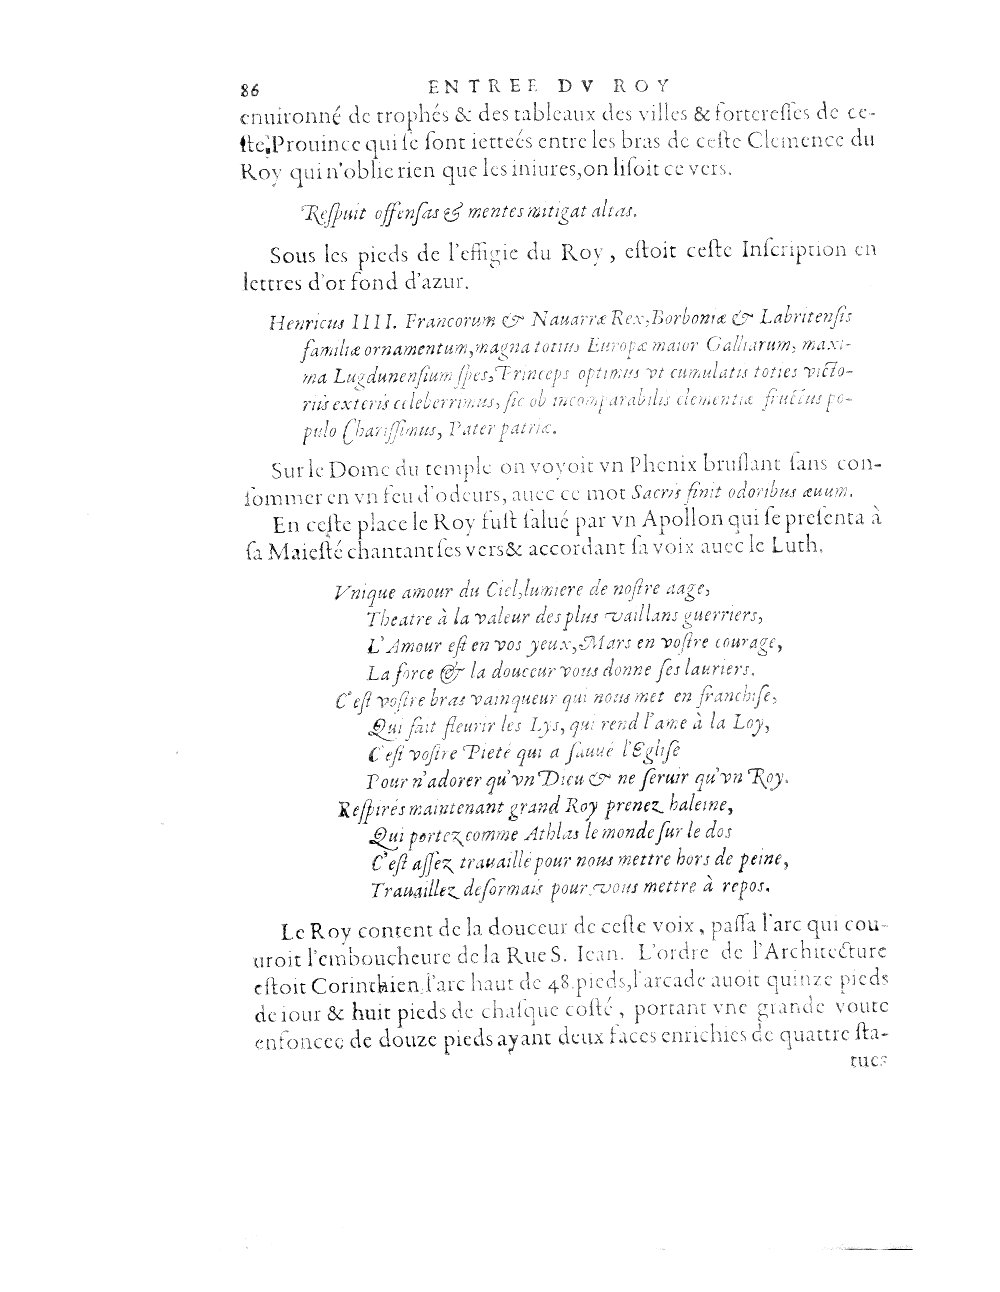 86 ENTREE DV ROY
enuironné de trophés & des tableaux des villes & forteresſes de ce-
ſte Prouince qui ſe ſont ietteés entre les bras de ceſte Clemence du
Roy qui n'oblie rien que les iniures, on liſoit ce vers.
Reſpuit offenſas & mentes mitigat altas.
Sous les pieds de l'effigie du Roy, eſtoit ceſte Inſcription en
lettres d'or fond d'azur.
Henricus IIII. Francorum & Nauarræ Rex, Borboniæ & Labritenſis
familiæ ornamentum, magna totius Europæ maior Galliarum, maxi-
ma Lugdunenſium ſpes, Princeps optimus vt cumulatis toties victo-
riis exteris celeberrimus, ſic ob incomparabilis clementiæ fructus po-
pulo Chariſſimus, Pater patriæ.
Sur le Dome du temple on voyoit vn Phenix bruſlant ſans con-
ſommer en vn feu d'odeurs, auec ce mot Sacris finit odoribus æuum.
En ceſte place le Roy fuſt ſalué par vn Apollon qui ſe preſenta à
ſa Maieſté chantant ſes vers & accordant ſa voix auec le Luth.
Vnique amour du Ciel, lumiere de noſtre aage,
Theatre à la valeur des plus vaillans guerriers,
L'Amour eſt en vos yeux, Mars en voſtre courage,
La force & la douceur vous donne ſes lauriers.
C'eſt voſtre bras vainqueur qui nous met en franchiſe,
Qui fait fleurir les Lys, qui rend l'ame à la Loy,
C'eſt voſtre Pieté qui a ſauué l'Egliſe
Pour n'adorer qu'vn Dieu & ne ſeruir qu'vn Roy.
Reſpirés maintenant grand Roy prenez haleine,
Qui portez comme Athlas le monde ſur le dos
C'eſt aſſez trauaillé pour nous mettre hors de peine,
Trauaillez deſormais pour vous mettre à repos.
Le Roy content de la douceur de ceſte voix, paſſa l'arc qui cou-
uroit l'emboucheure de la Rue S. Iean. L'ordre de l'Architecture
eſtoit Corinthien, l'arc haut de 48. pieds, l'arcade auoit quinze pieds
de iour & huit pieds de chaſque coſté, portant vne grande voute
enfoncee de douze pieds ayant deux faces enrichies de quattre ſta-
tues